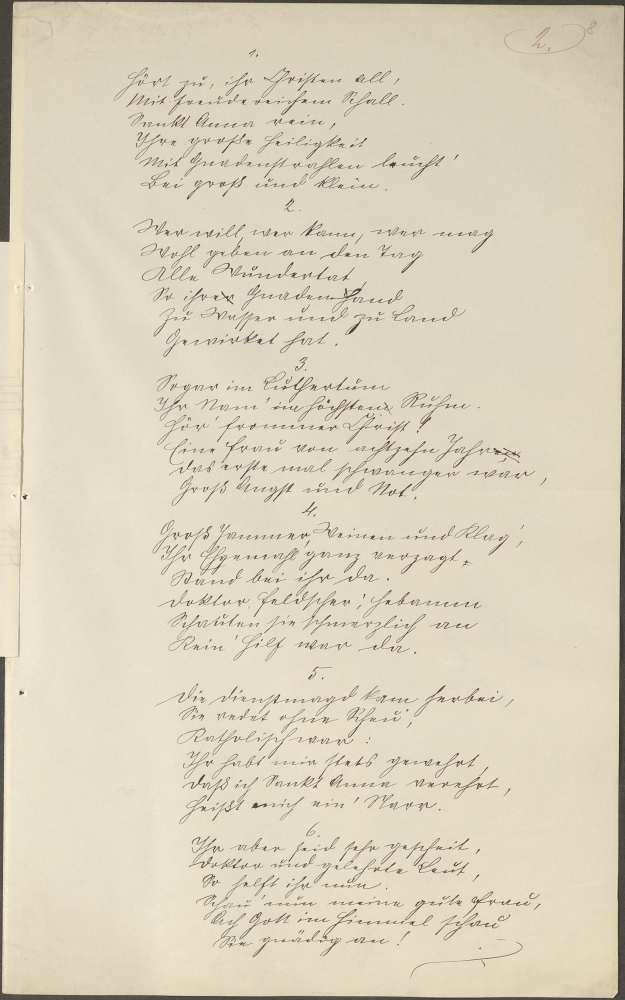 2. 8
1.
Hört zu, ihr Christen all,
Mit freudereichem Schall.
Sankt Anna rein,
Ihre große Heiligkeit
Mit Gnadenstrahlen leucht'
Bei groß und klein.
2.
Wer will, wer kann, wer mag
Wohl geben an den Tag
Alle Wundertat
So ihrer Gnaden Hand
Zu Wasser und zu Land
Gewirket hat.
3.
Sogar im Luthertum
Ihr Nam' im höchsten Ruhm.
Hör' frommer Christ!
Eine Frau von achtzehn Jahren
das erste mal schwanger war,
Groß Angst und Not.
4.
Groß Jammer, Weinen und Klag',
Ihr Ehgemahl ganz verzagt,
Stand bei ihr da.
Doktor, Feldscher', Hebamm
Schauten sie schmerzlich an
Kein' Hilf war da.
5.
Die Dienstmagd kam herbei,
Sie redet ohne Scheu,
Katholisch war:
Ihr habt mir stets gewehrt,
daß ich Sankt Anna verehrt,
Heißt mich ein' Narr.
6.
Ihr aber seid sehr gescheit,
Doktor und gelehrte Leut,
So helft ihr nun.
Schau' nun meine gute Frau,
Ach Gott im Himmel schau
Sie gnädig an!